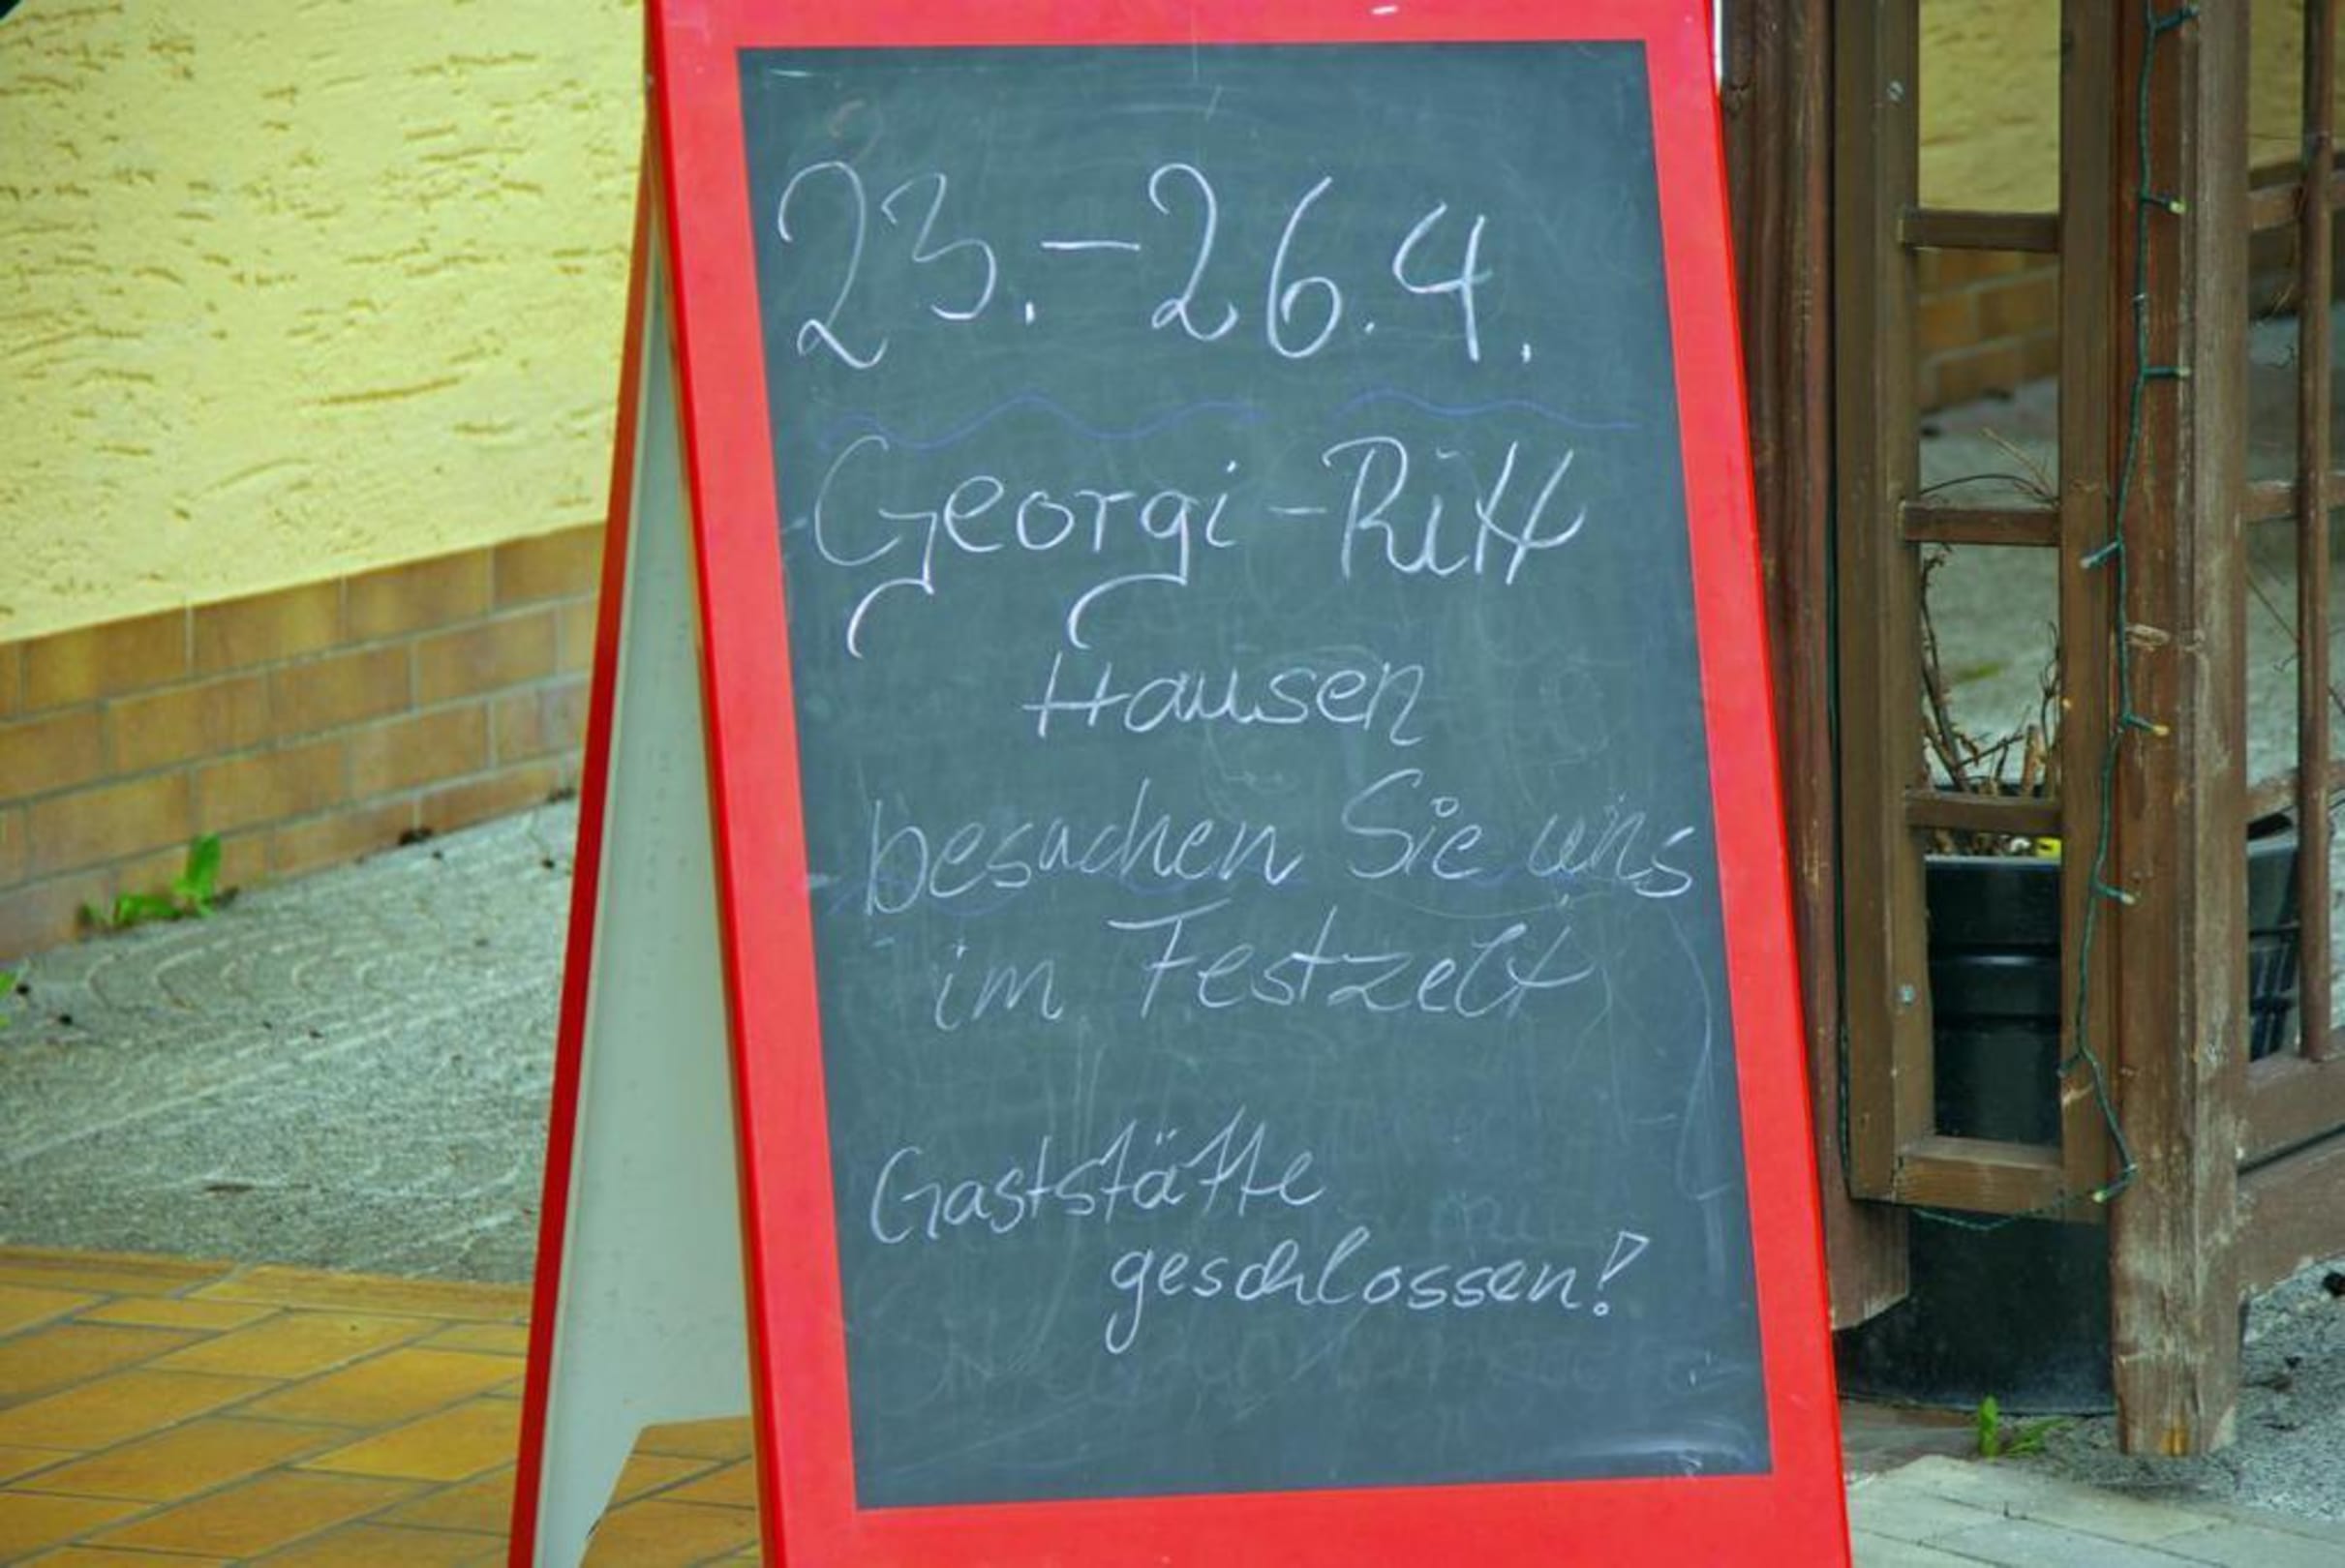 23.-26.4.
Georgi-Ritt
Hausen
besuchen Sie uns
im Festzelt
Gaststätte
geschlossen!